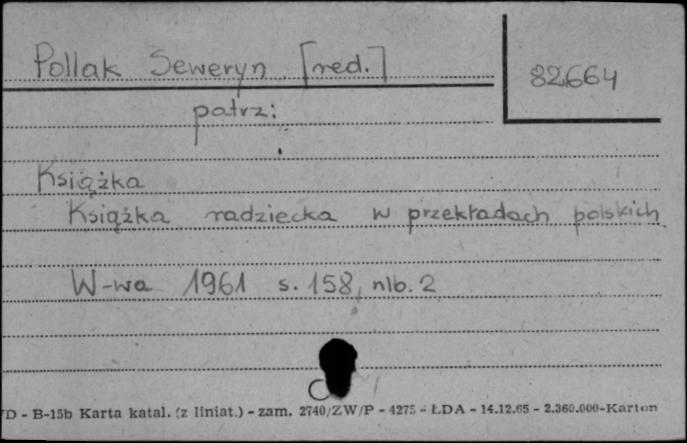 Pollak Seweryn [red.]
82664
patrz:
Książka
Książka radziecka w przekładach polskich
W-wa 1961 s. 158, nlb. 2
D - B-15b Karta katal. (z liniat.) - zam. 2740/ZW/P - 4275 - ŁDA - 14.12.65 - 2.360.000-Karton